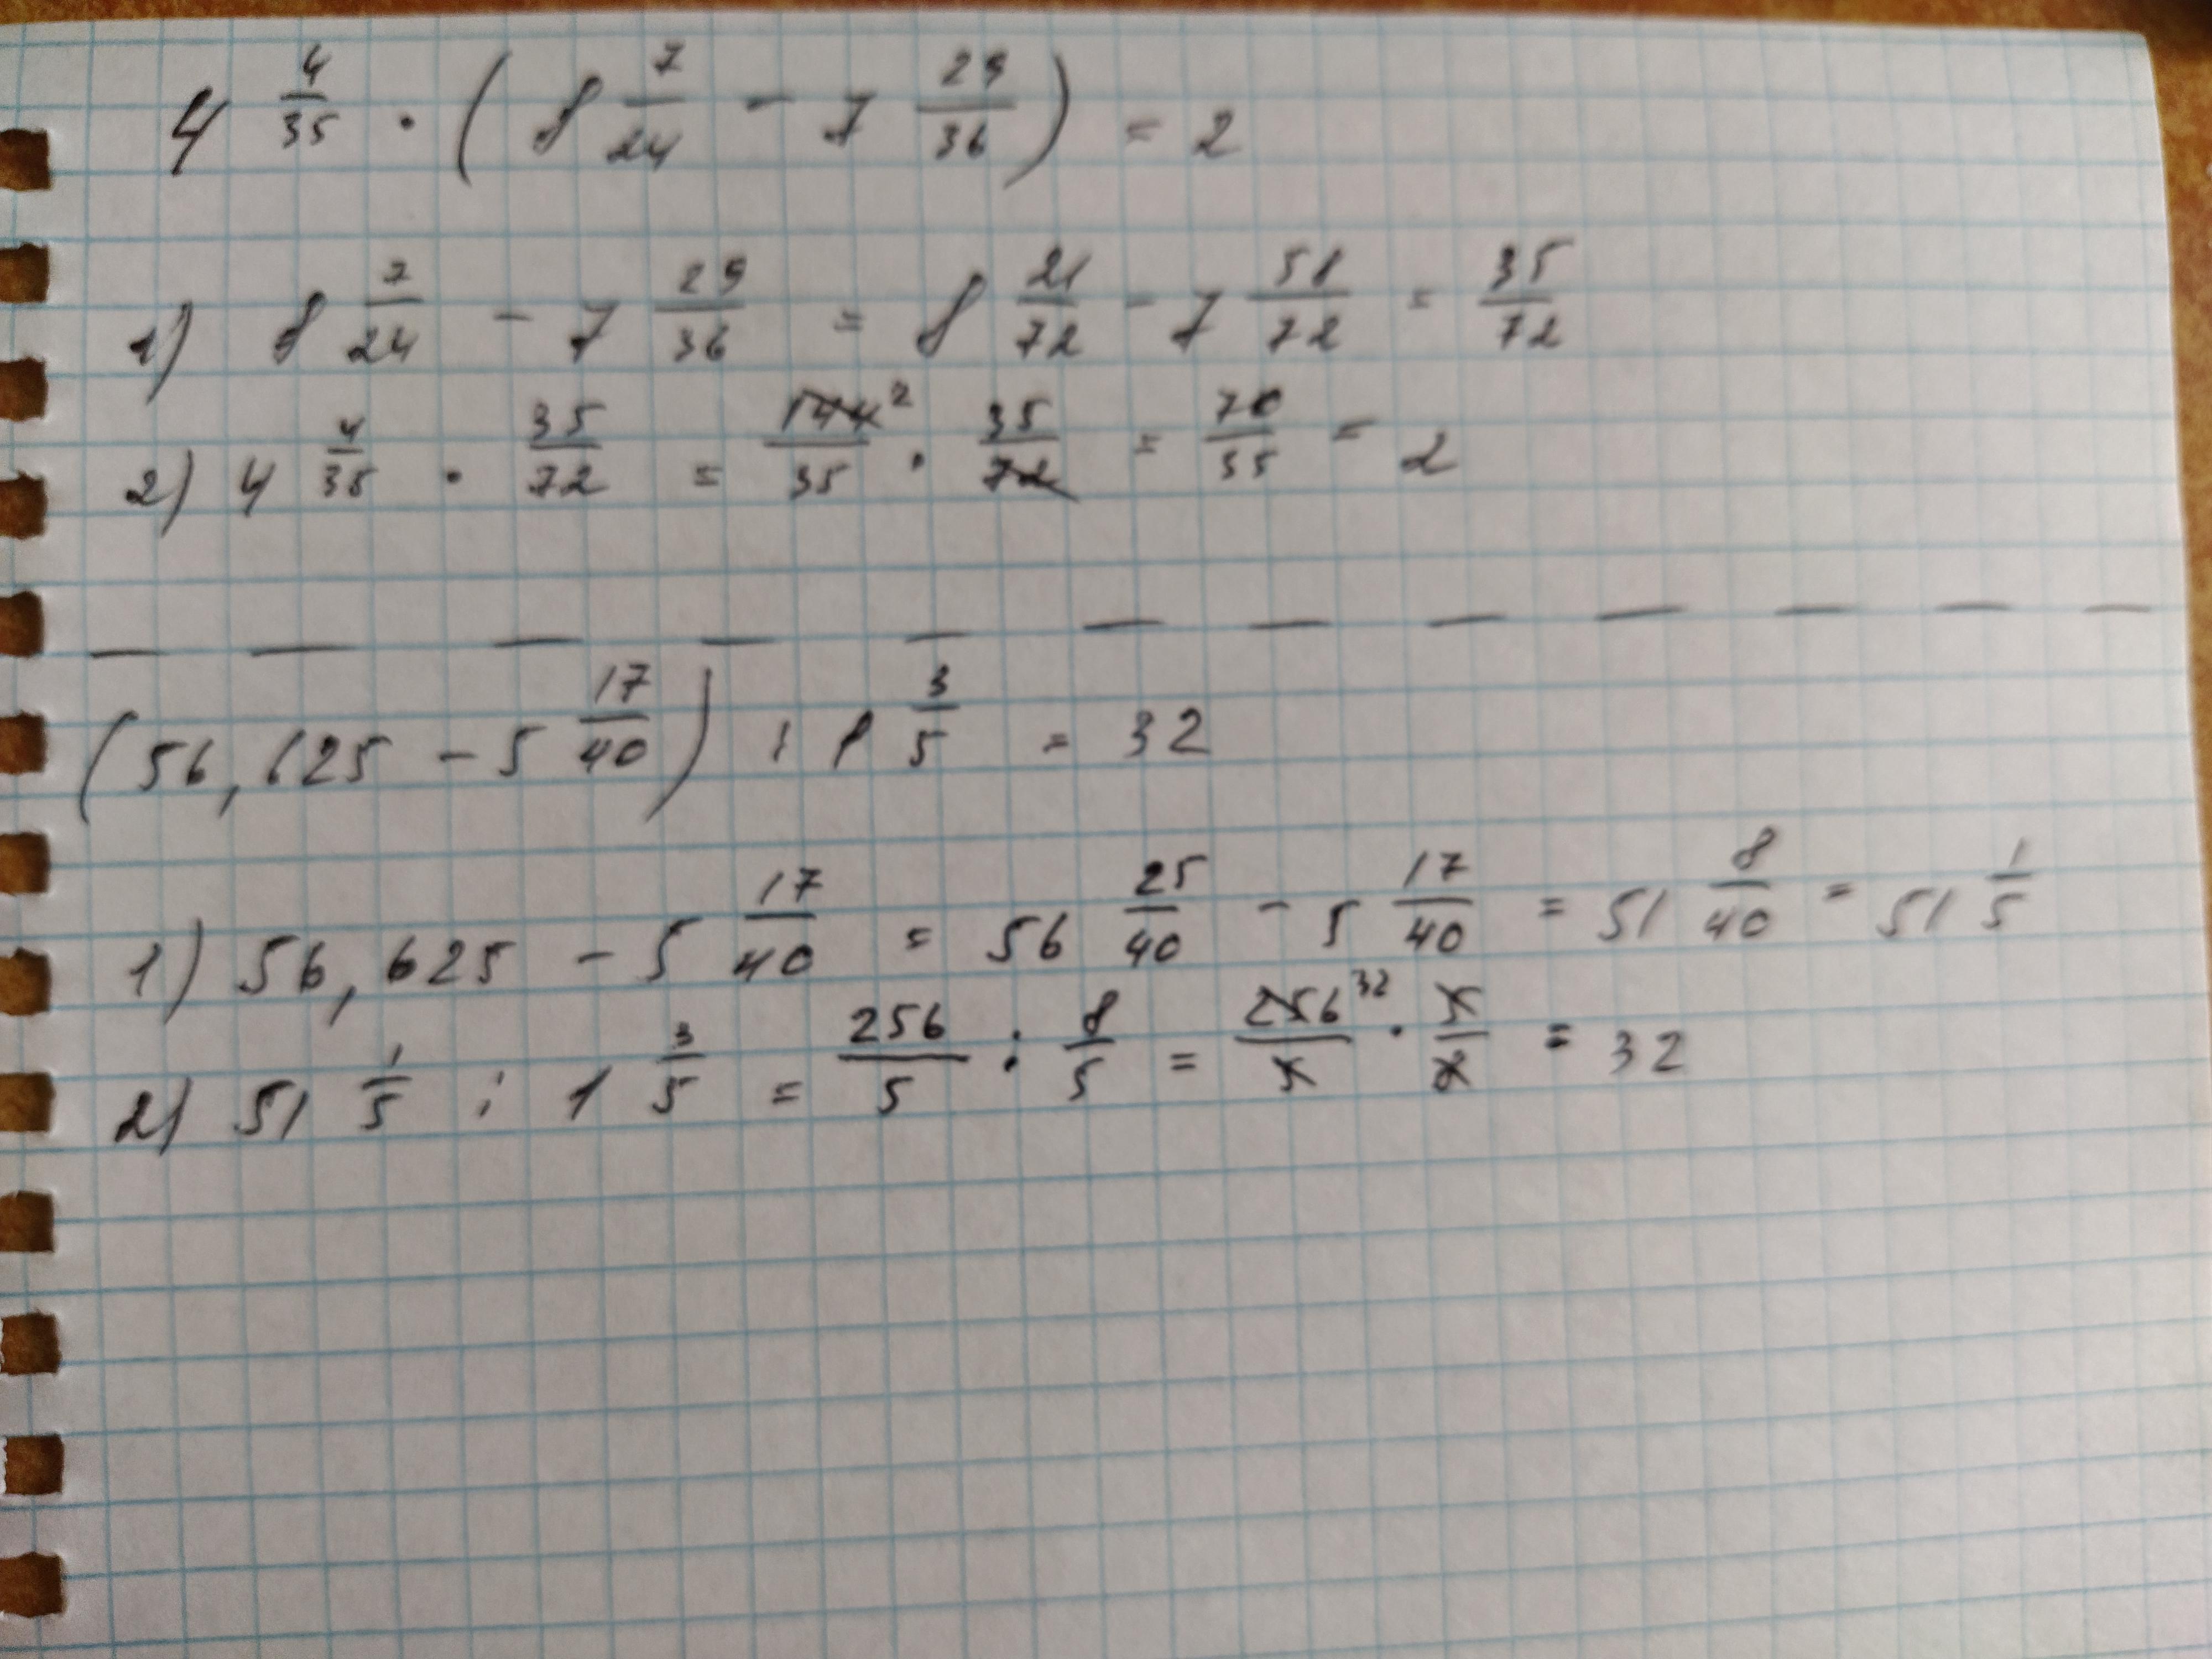 4 4/35 · (8 7/24 - 7 29/36) = 2
1) 8 7/24 - 7 29/36 = 8 21/72 - 7 58/72 = 35/72
2) 4 4/35 · 35/72 = 144 2/35 · 35/72 = 70/35 = 2
(56,625 - 5 17/40) : 1 3/5 = 32
1) 56,625 - 5 17/40 = 56 25/40 - 5 17/40 = 51 8/40 = 51 1/5
2) 51 1/5 : 1 3/5 = 256/5 : 8/5 = 256 32/5 · 5/8 = 32